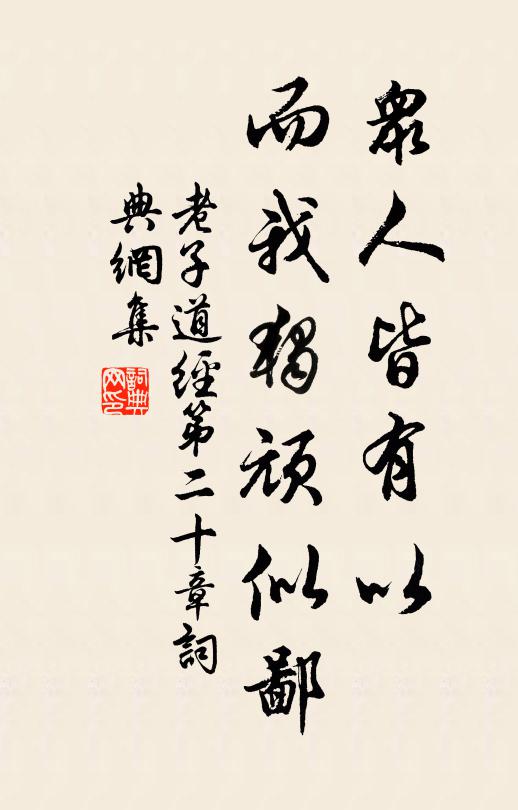 眾人皆有以
而我獨頑似鄙
老子道經第二十章詞
典網集
詞典
網印